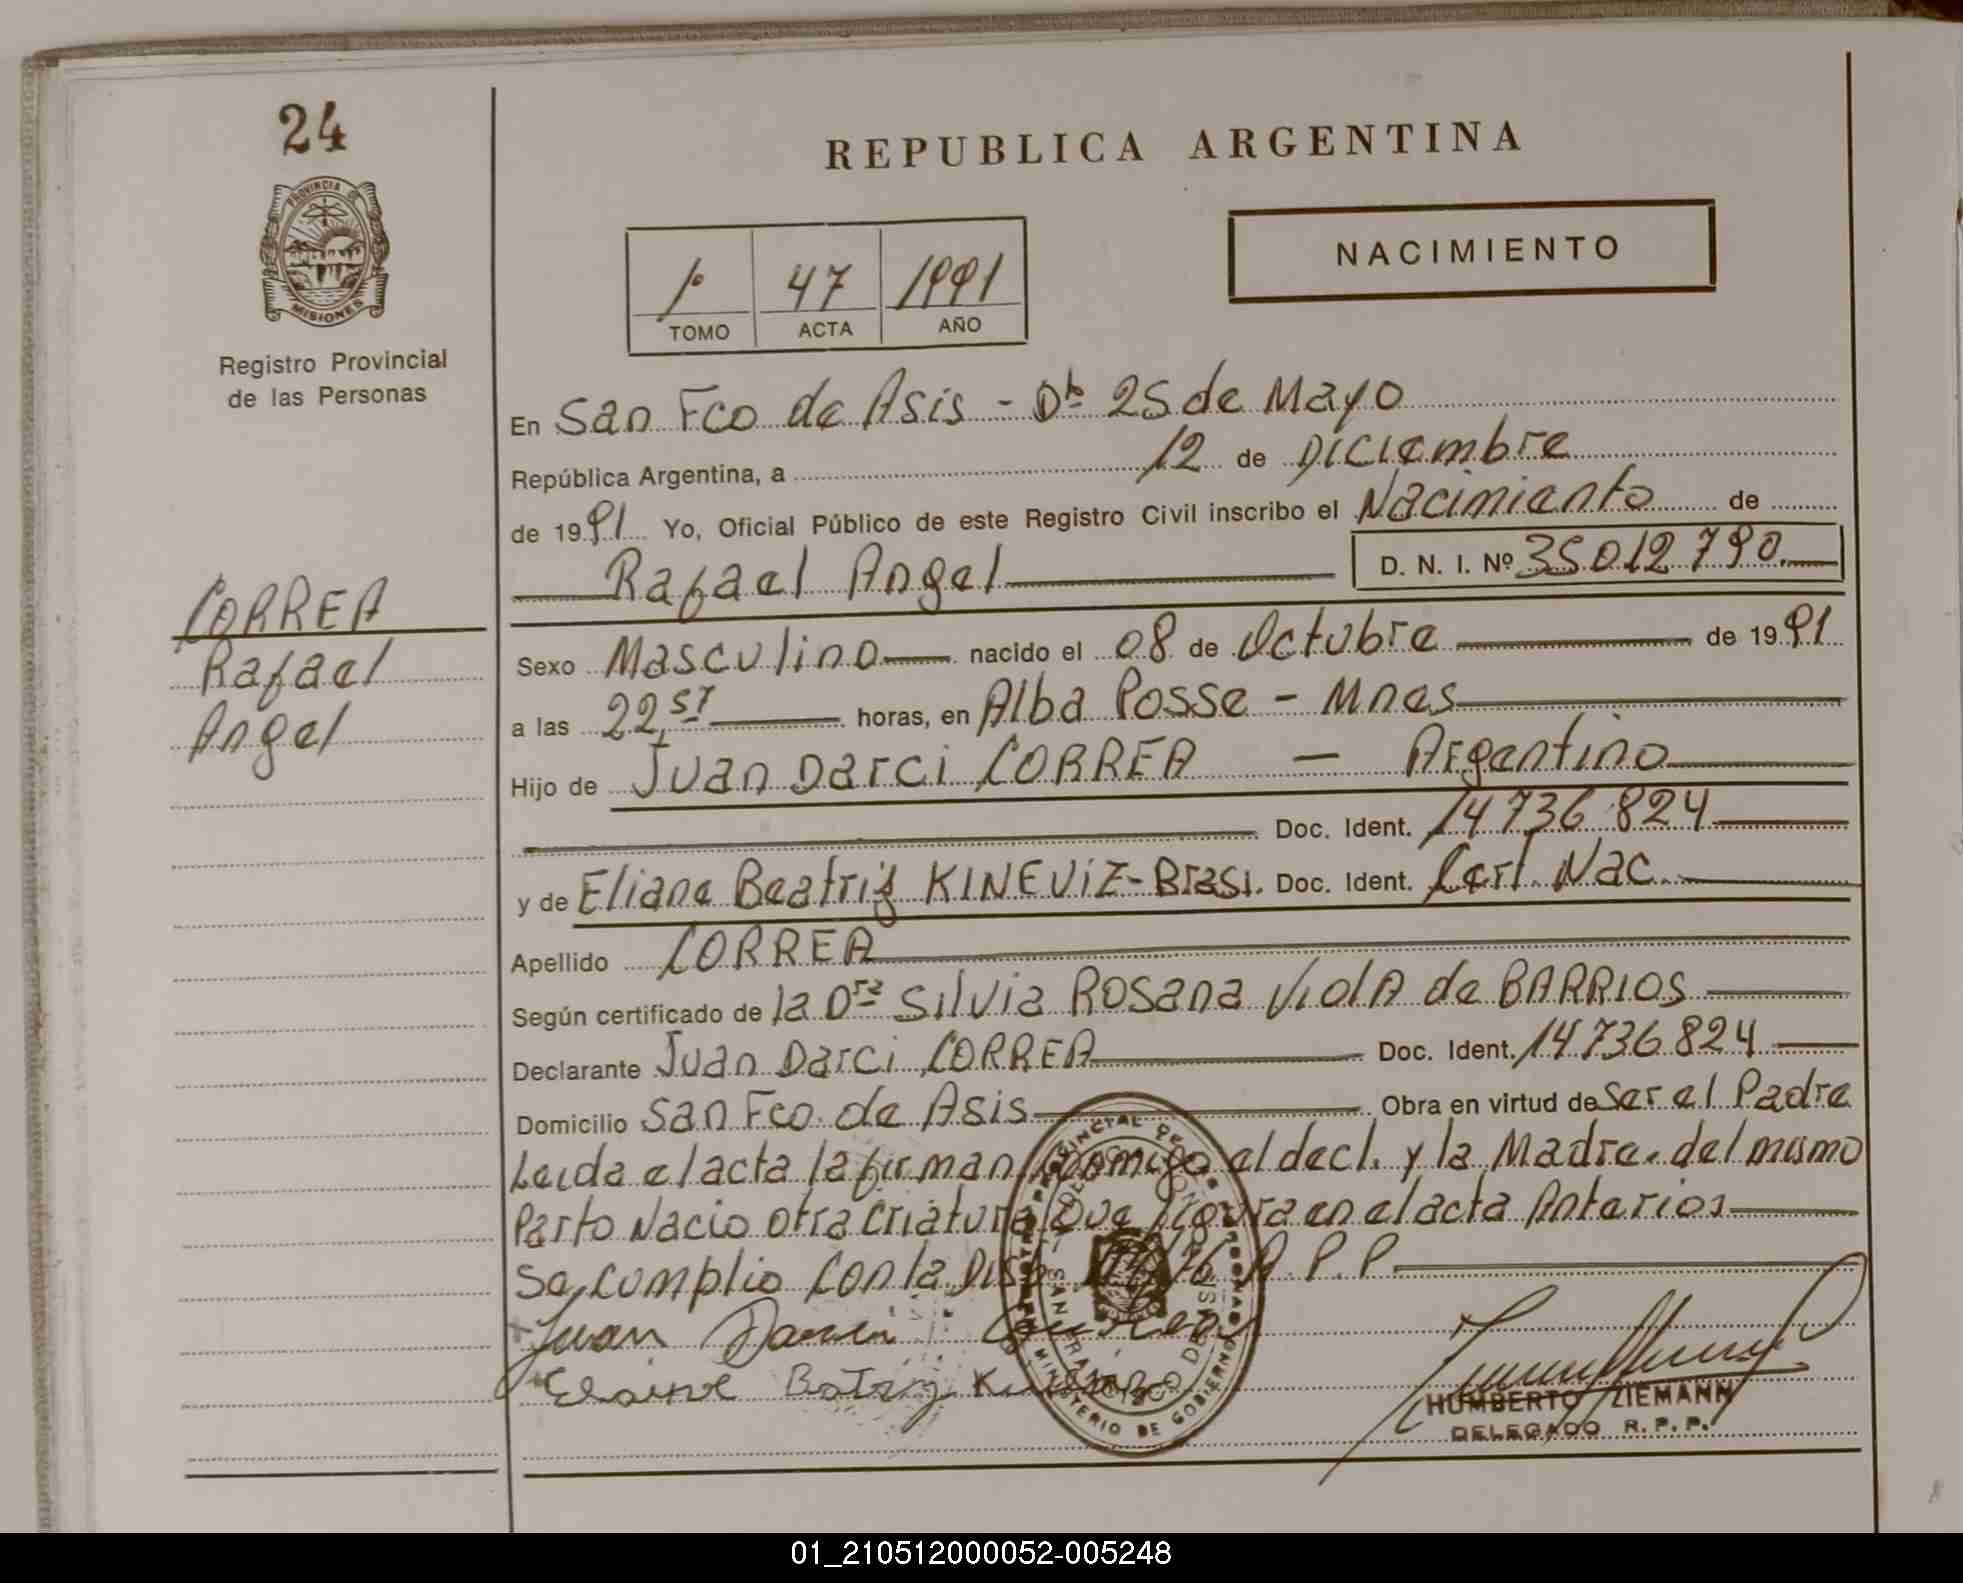 24
REPUBLICA ARGENTINA
PROVINCIA DE
MISIONES
Registro Provincial
de las Personas
1º 47 1991
TOMO ACTA AÑO
NACIMIENTO
En San Fco de Asis - Dto 25 de Mayo
República Argentina, a 12 de Diciembre
de 1991 Yo, Oficial Público de este Registro Civil inscribo el Nacimiento de
Rafael Angel D. N. I. Nº 35.012.790.
CORREA
Rafael
Angel
Sexo Masculino nacido el 08 de Octubre de 1991
a las 22,57 horas, en Alba Posse - Mnes
Hijo de Juan Darci CORREA - Argentino
Doc. Ident. 14.736.824
y de Eliane Beatriz KINEVIZ - Brasi. Doc. Ident. Cert. Nac.
Apellido CORREA
Según certificado de la Dra Silvia Rosana Viola de BARRIOS
Declarante Juan Darci CORREA Doc. Ident. 14.736.824
Domicilio San Fco. de Asis Obra en virtud de Ser el Padre
Leida el acta la firman conmigo el decl. y la Madre. del mismo
Parto Nacio otra Criatura que figura en el acta Anterior
Se cumplio con la Disp. R.P.P.
Juan Darci Correa
Beatriz
HUMBERTO ZIEMANN
DELEGADO R. P. P.
MINISTERIO DE GOBIERNO
SAN FRANCISCO DE ASIS
01_210512000052-005248